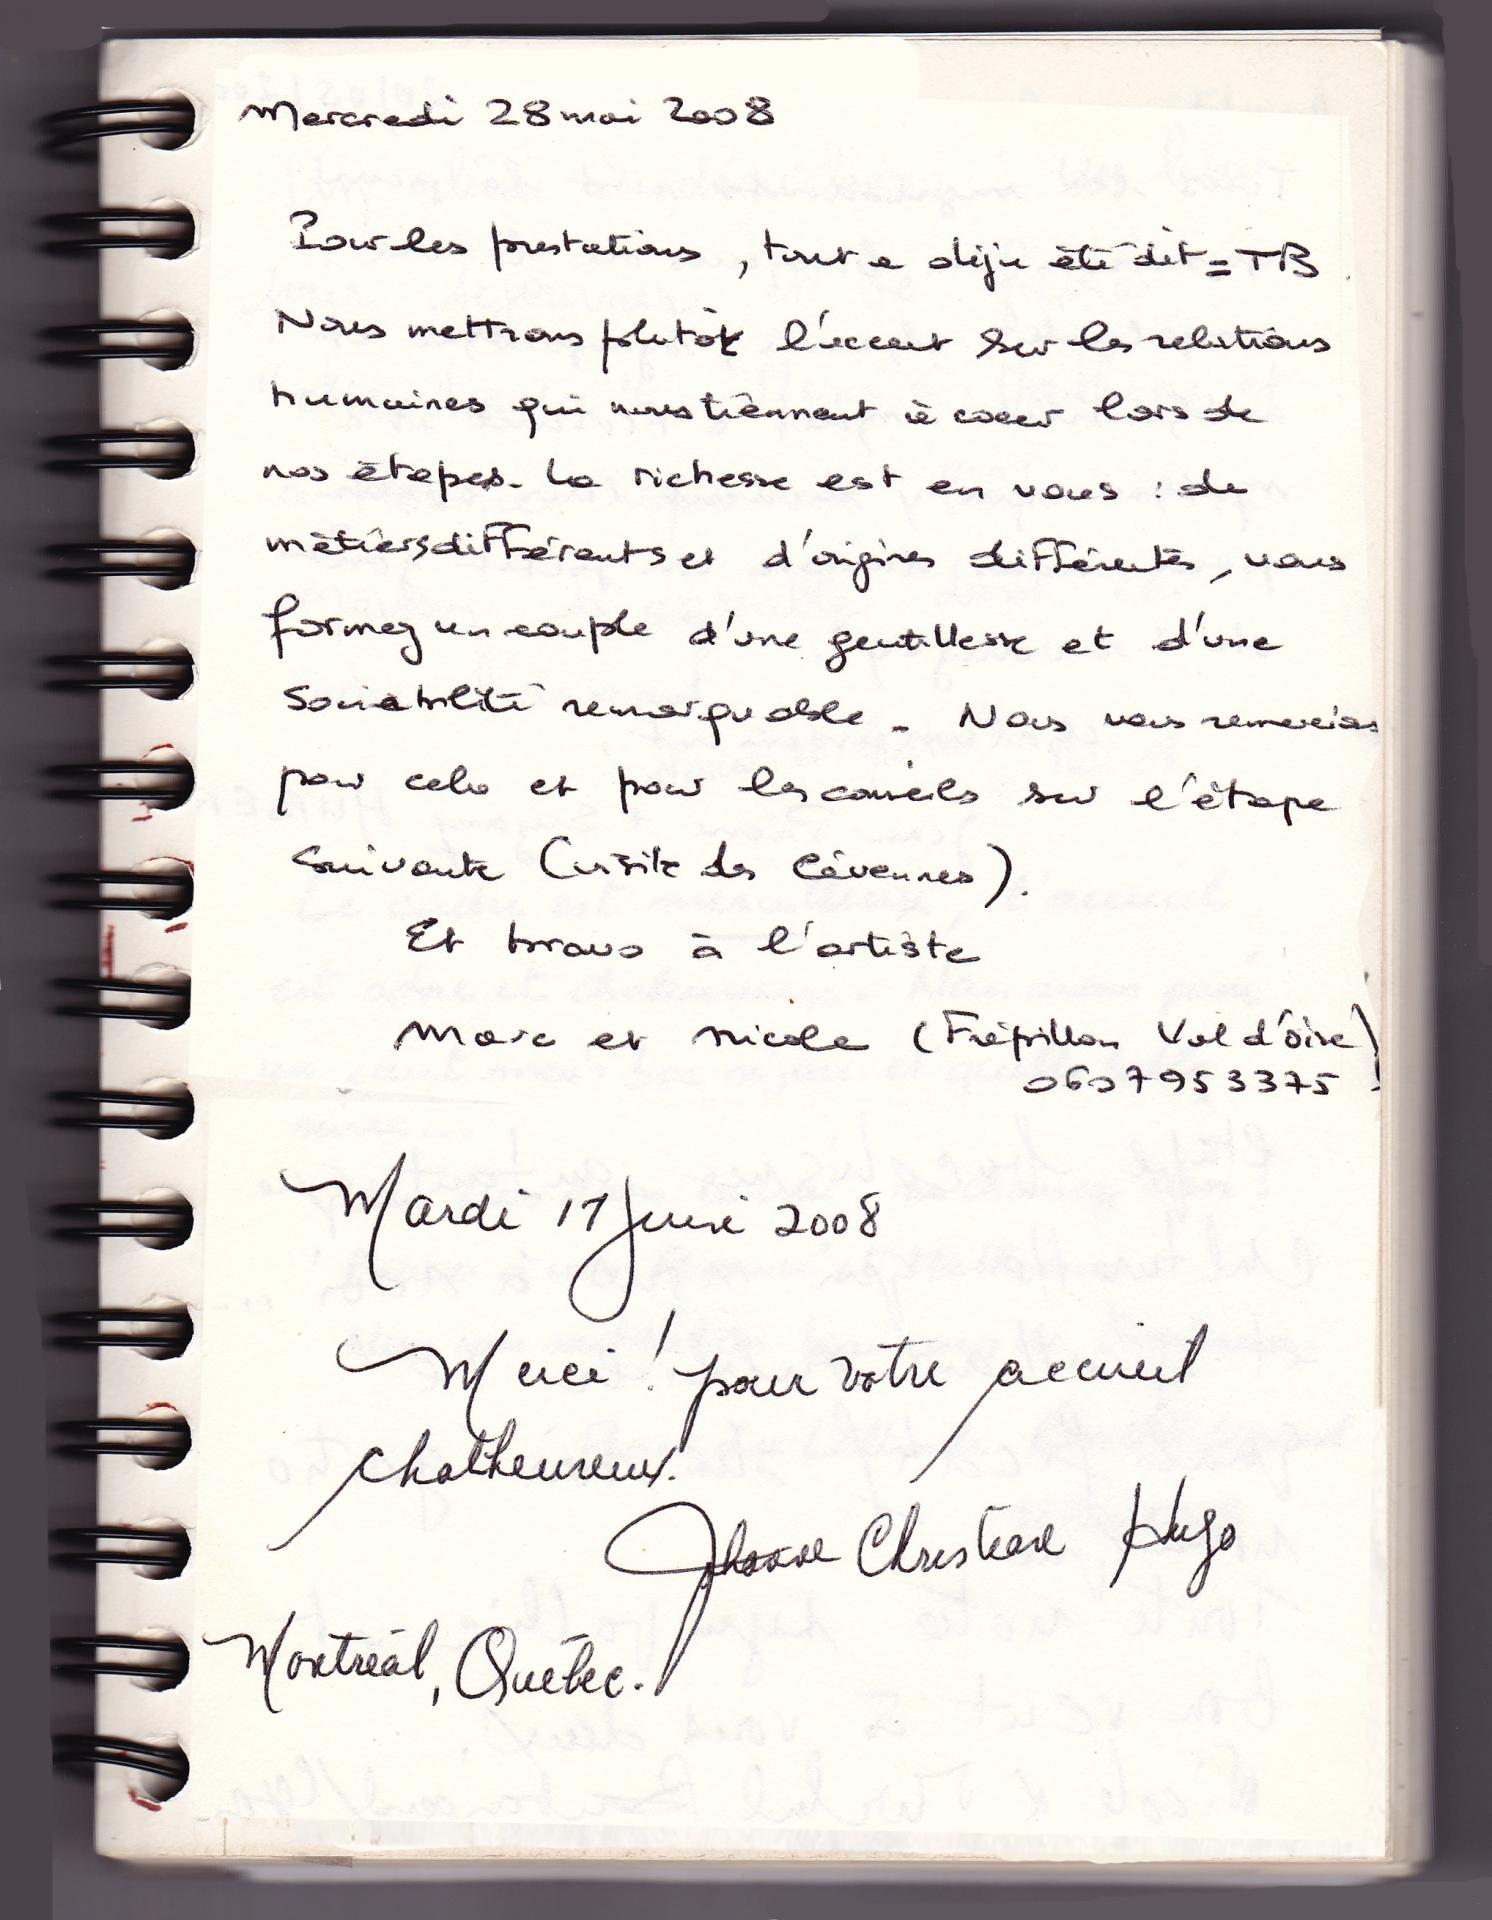 Mercredi 28 mai 2008
Pour les prestations, tout a déjà été dit = TB.
Nous mettrons plutôt l'accent sur les relations
humaines qui nous tiennent à coeur lors de
nos étapes. La richesse est en vous : de
métiers différents et d'origines différentes, vous
formez un couple d'une gentillesse et d'une
sociabilité remarquable. Nous vous remercions
pour cela et pour les conseils sur l'étape
suivante (visite des Cévennes).
Et bravo à l'artiste
Marc et Nicole (Frépillon Val d'Oise)
0607953375
Mardi 17 Juin 2008
Merci! pour votre accueil
chatheureux.
Christiane Hugo
Montréal, Québec.